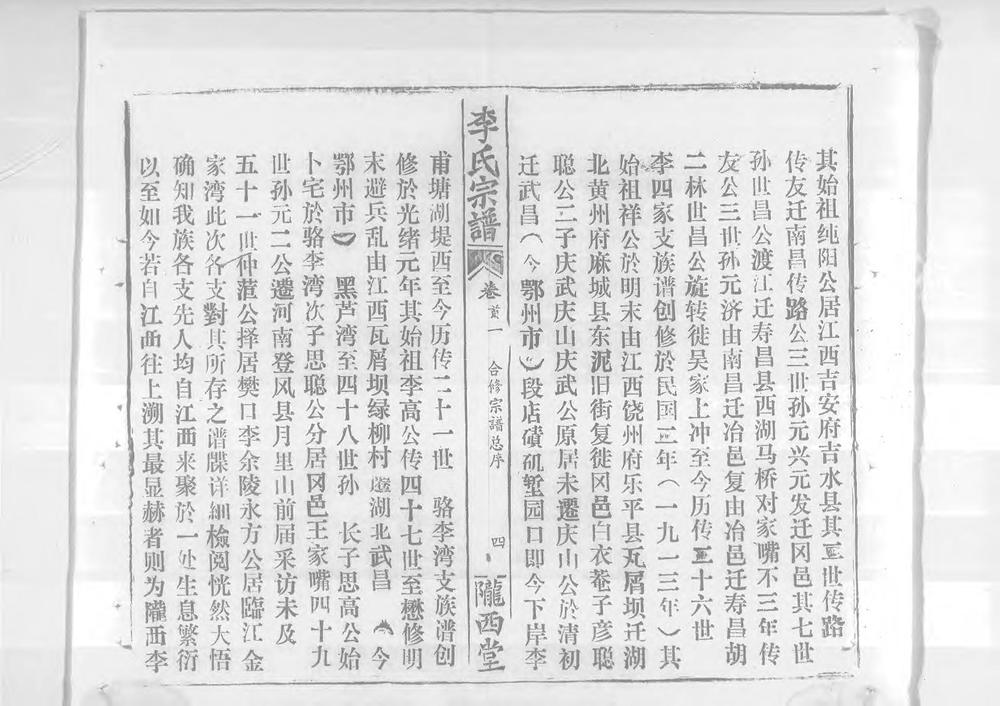 其始祖纯阳公居江西吉安府吉水县其三世传路
传友迁南昌传路公三世孙元兴元发迁冈邑其七世
孙世昌公渡江迁寿昌县西湖马桥对家嘴不三年传
友公三世孙元济由南昌迁冶邑复由冶邑迁寿昌胡
二林世昌公旋转徙吴家上冲至今历传三十六世
李四家支族谱创修於民国二年（一九一三年）其
始祖祥公於明末由江西饶州府乐平县瓦屑坝迁湖
北黄州府麻城县东泥旧街复徙冈邑白衣菴子彦聪
聪公二子庆武庆山庆武公原居未遷庆山公於清初
迁武昌（今鄂州市）段店磧矶堑园口即今下岸李
李氏宗譜
卷首一
合修宗谱总序
四
隴西堂
甫塘湖堤西至今历传二十一世 骆李湾支族谱创
修於光绪元年其始祖李高公传四十七世至懋修明
末避兵乱由江西瓦屑坝绿柳村遷湖北武昌（今
鄂州市） 黑芦湾至四十八世孙 长子思高公始
卜宅於骆李湾次子思聪公分居冈邑王家嘴四十九
世孙元二公遷河南登风县月里山前届采访未及
五十一世仲菹公择居樊口李余陵永方公居臨江金
家湾此次各支對其所存之谱牒详細檢閲恍然大悟
确知我族各支先人均自江西来聚於一处生息繁衍
以至如今若自江西往上溯其最显赫者则为隴西李